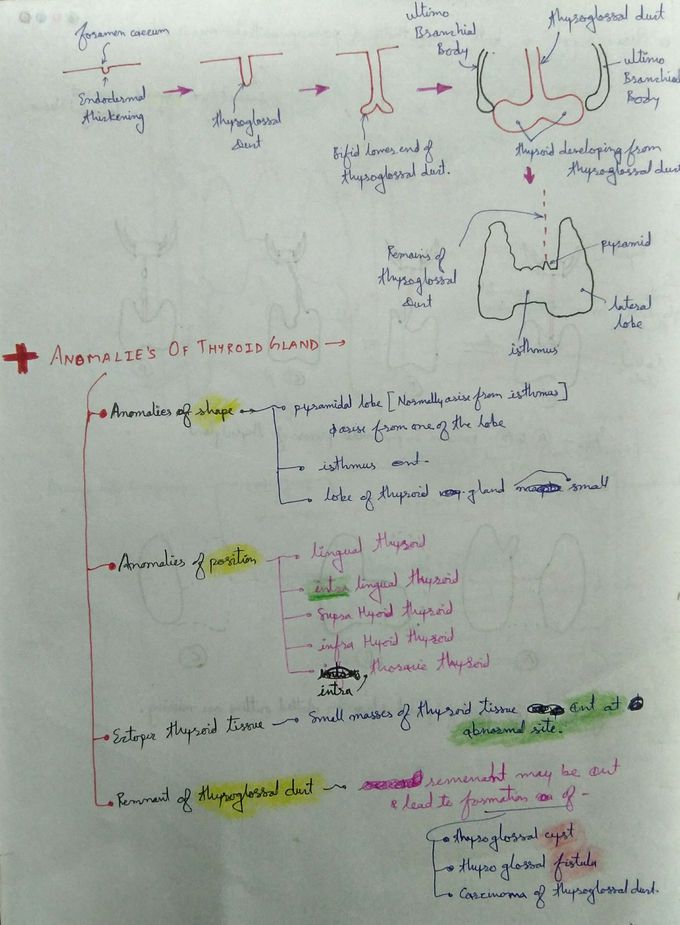 foramen caecum
Endodermal
thickening
Thyroglossal
Duct
Bifid lower end of
thyroglossal duct.
ultimo
Branchial
Body
thyroglossal duct
ultimo
Branchial
Body
thyroid developing from
thyroglossal duct
Remains of
thyroglossal
Duct
pyramid
lateral
lobe
isthmus
ANOMALIE'S OF THYROID GLAND →
Anomalies of shape
pyramidal lobe [Normally arise from isthmus]
arise from one of the lobe
isthmus
lobe of thyroid gland small
Anomalies of position
lingual thyroid
intra lingual thyroid
Supra Hyoid thyroid
infra Hyoid thyroid
intra thoracic thyroid
Ectopic thyroid tissue
Small masses of thyroid tissue at
abnormal site.
Remnant of thyroglossal duct
remenant may be
& lead to formation of -
thyroglossal cyst
thyro glossal fistula
Carcinoma of thyroglossal duct.